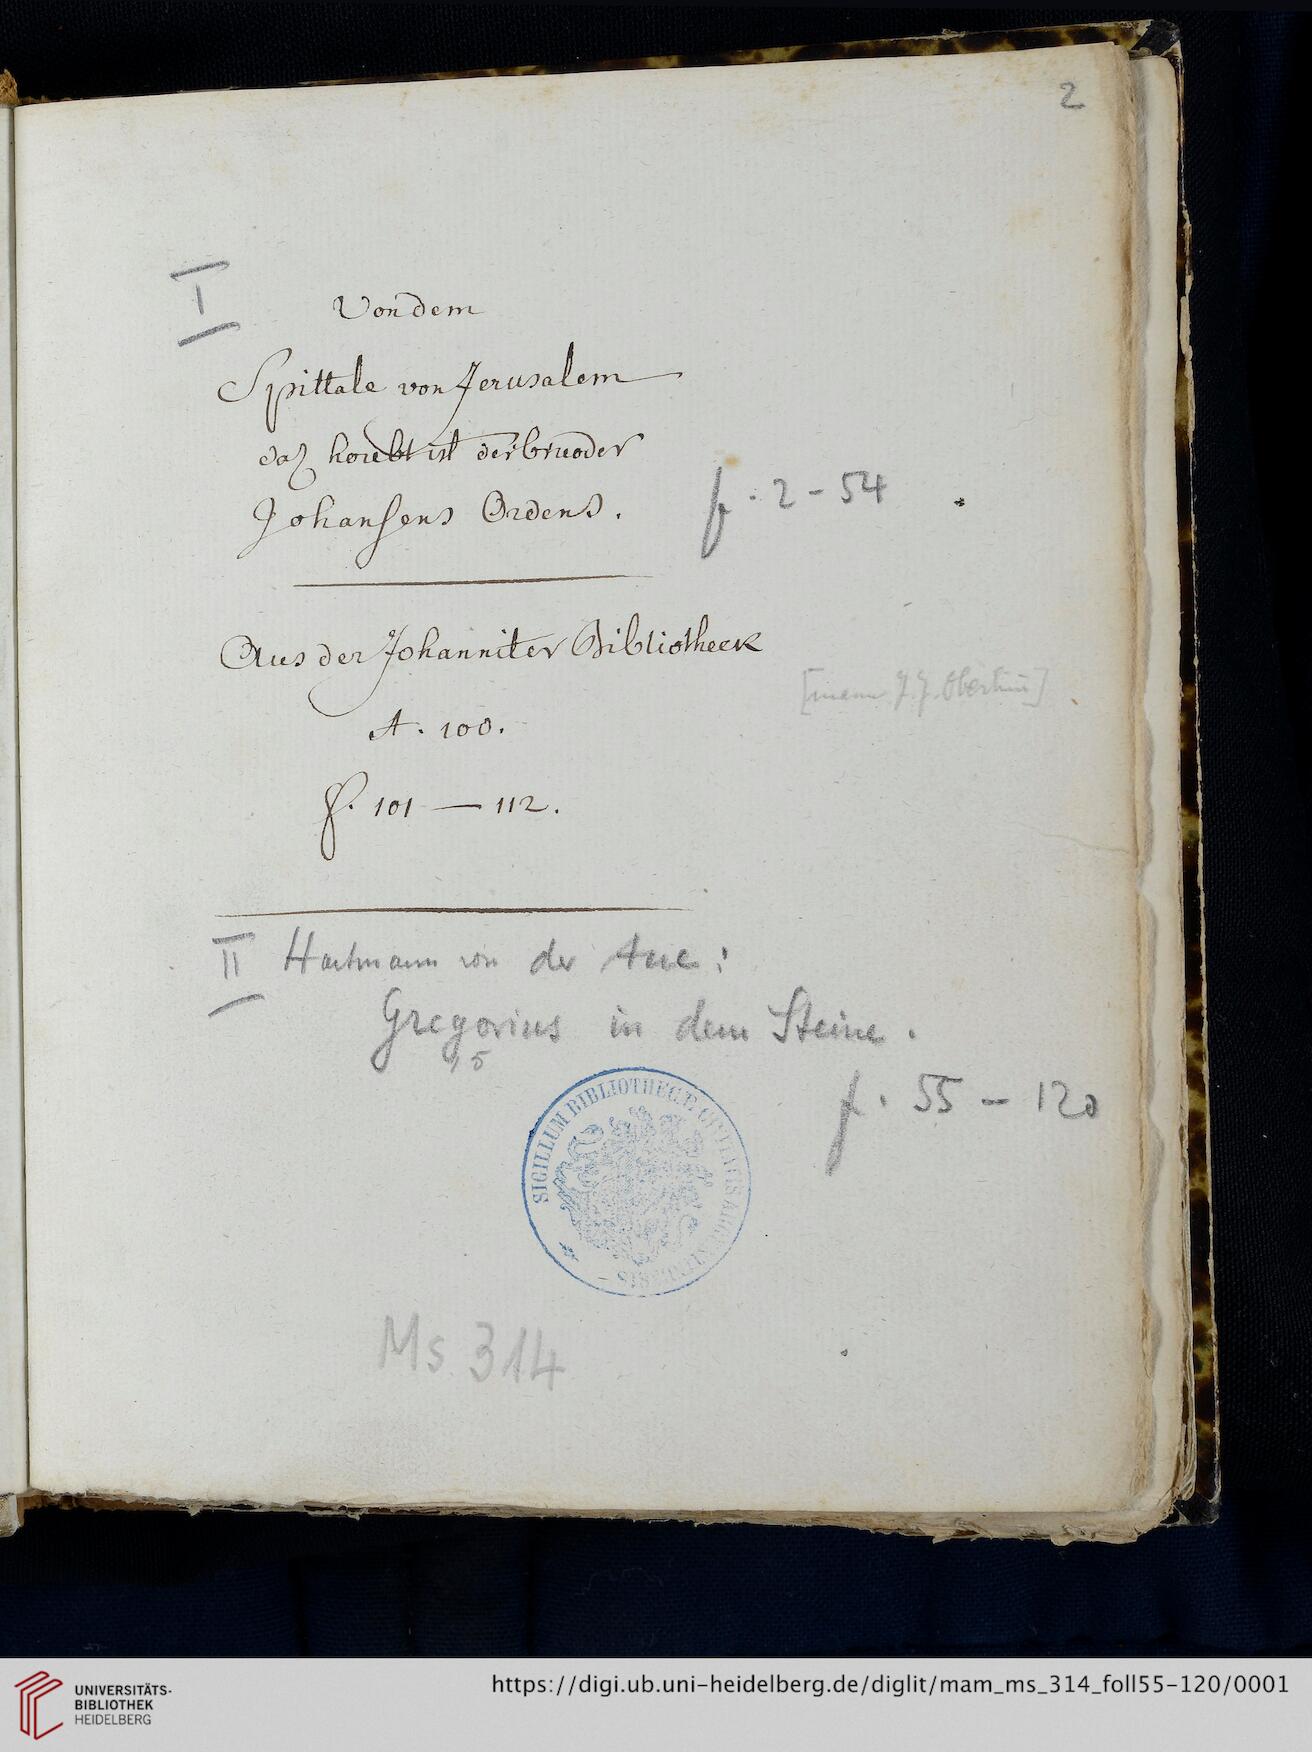 2
I
Von dem
Spittale von Jerusalem
daz houbt ist der bruoder
Johansens Ordens.
f. 2-54
Aus der Johanniter Bibliotheck
[manu J. J. Oberlini]
A. 100.
f. 101 — 112.
II Hartmann von der Aue:
Gregorius in dem Steine.
f. 55 - 120
SIGILLUM BIBLIOTHECÆ CIVITATIS ARGENTINENSIS
Ms 314
UNIVERSITÄTS-
BIBLIOTHEK
HEIDELBERG
https://digi.ub.uni-heidelberg.de/diglit/mam_ms_314_foll55-120/0001